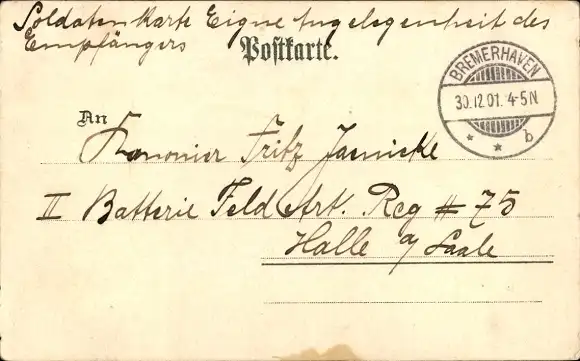 Soldatenkarte Eigne Angelegenheit des
Empfängers
Postkarte.
BREMERHAVEN
30.12.01. 4-5N
* * b
An
Kanonier Fritz Jaenicke
II Batterie Feld Art. Reg # 75
Halle a/Saale